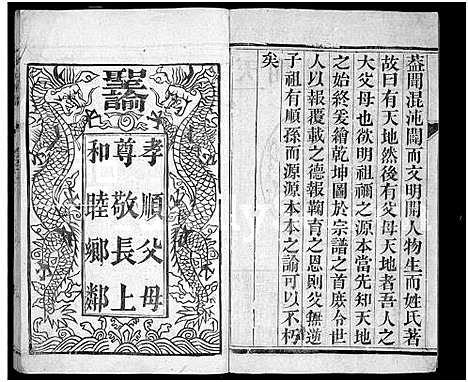 蓋聞混沌闢而文明開人物生而姓氏著
故曰有天地然後有父母天地者吾人之
大父母也欲明祖禰之源本當先知天地
之始終爰繪乾坤圖於宗譜之首庶令世
人以報覆載之德報鞠育之恩則父無逆
子祖有順孫而源源本本之論可以不朽
矣
聖諭
孝順父母
尊敬長上
和睦鄉鄰